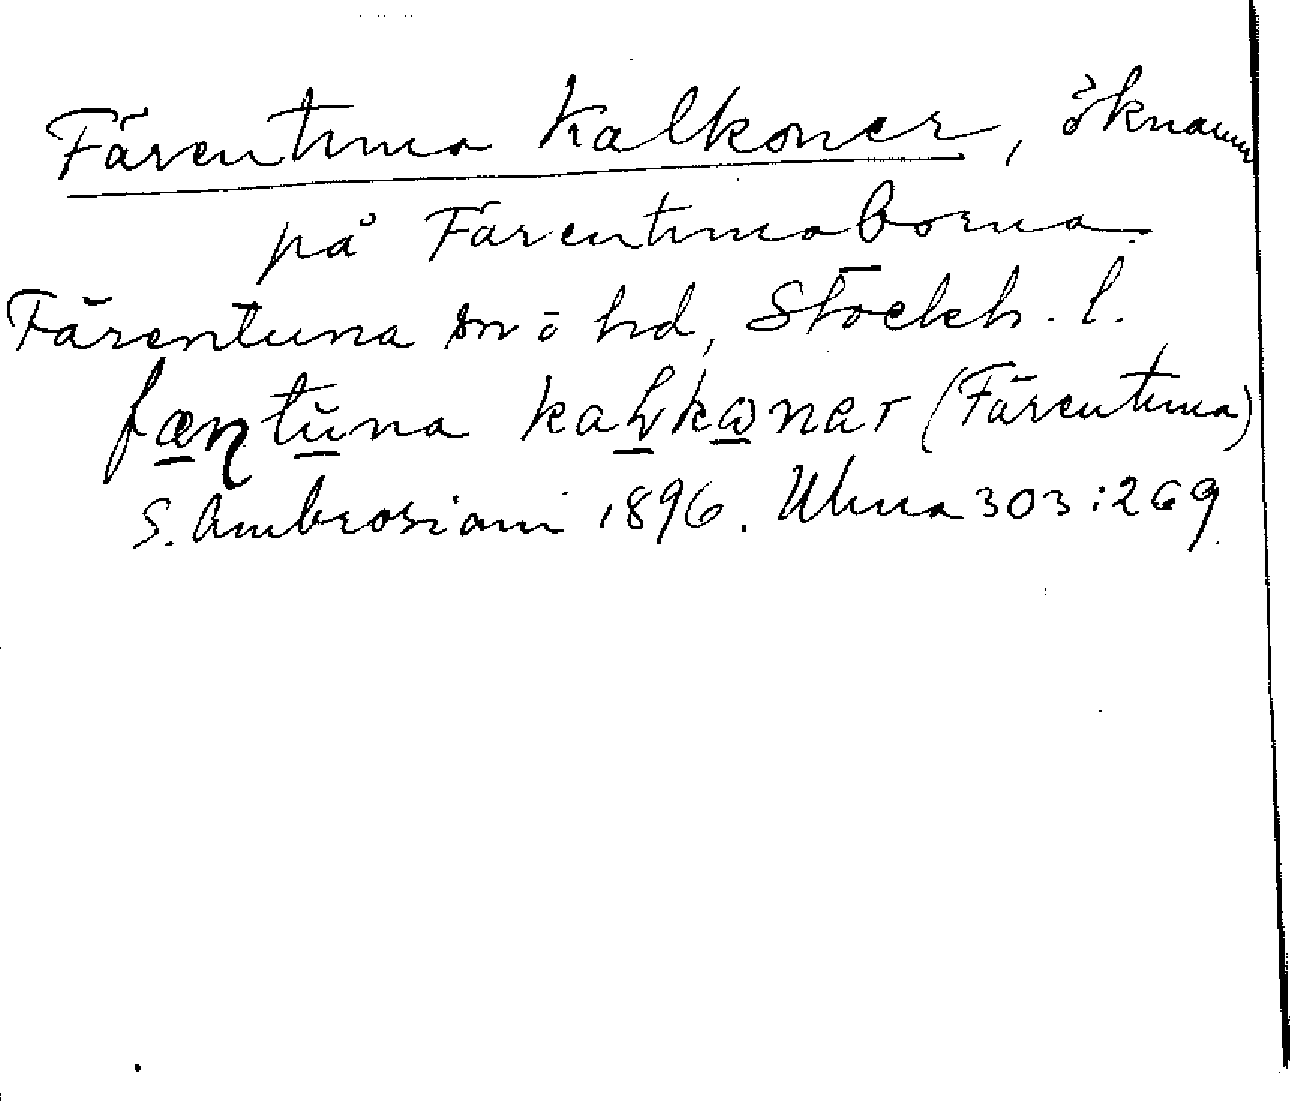 Färentuna Kalkoner, öknamn
på Färentunaborna.
Färentuna sn o hd, Stockh. l.
fæṇtuna kalkωner (Färentuna)
S. Ambrosiani 1896. Ulma 303:269.